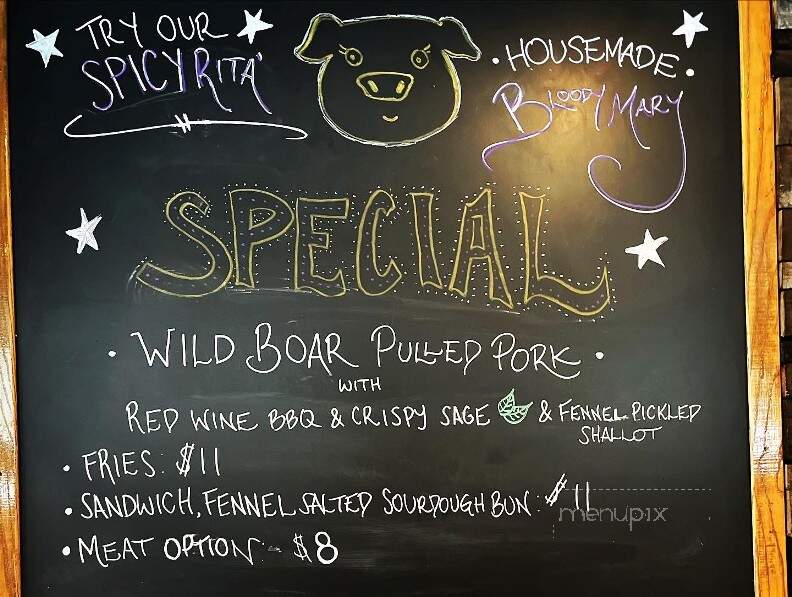 TRY OUR
SPICY RITA
HOUSEMADE
BLOODY MARY
SPECIAL
• WILD BOAR PULLED PORK •
WITH
RED WINE BBQ & CRISPY SAGE & FENNEL PICKLED
SHALLOT
• FRIES: $11
• SANDWICH, FENNEL SALTED SOURDOUGH BUN: $11
menupix
• MEAT OPTION - $8